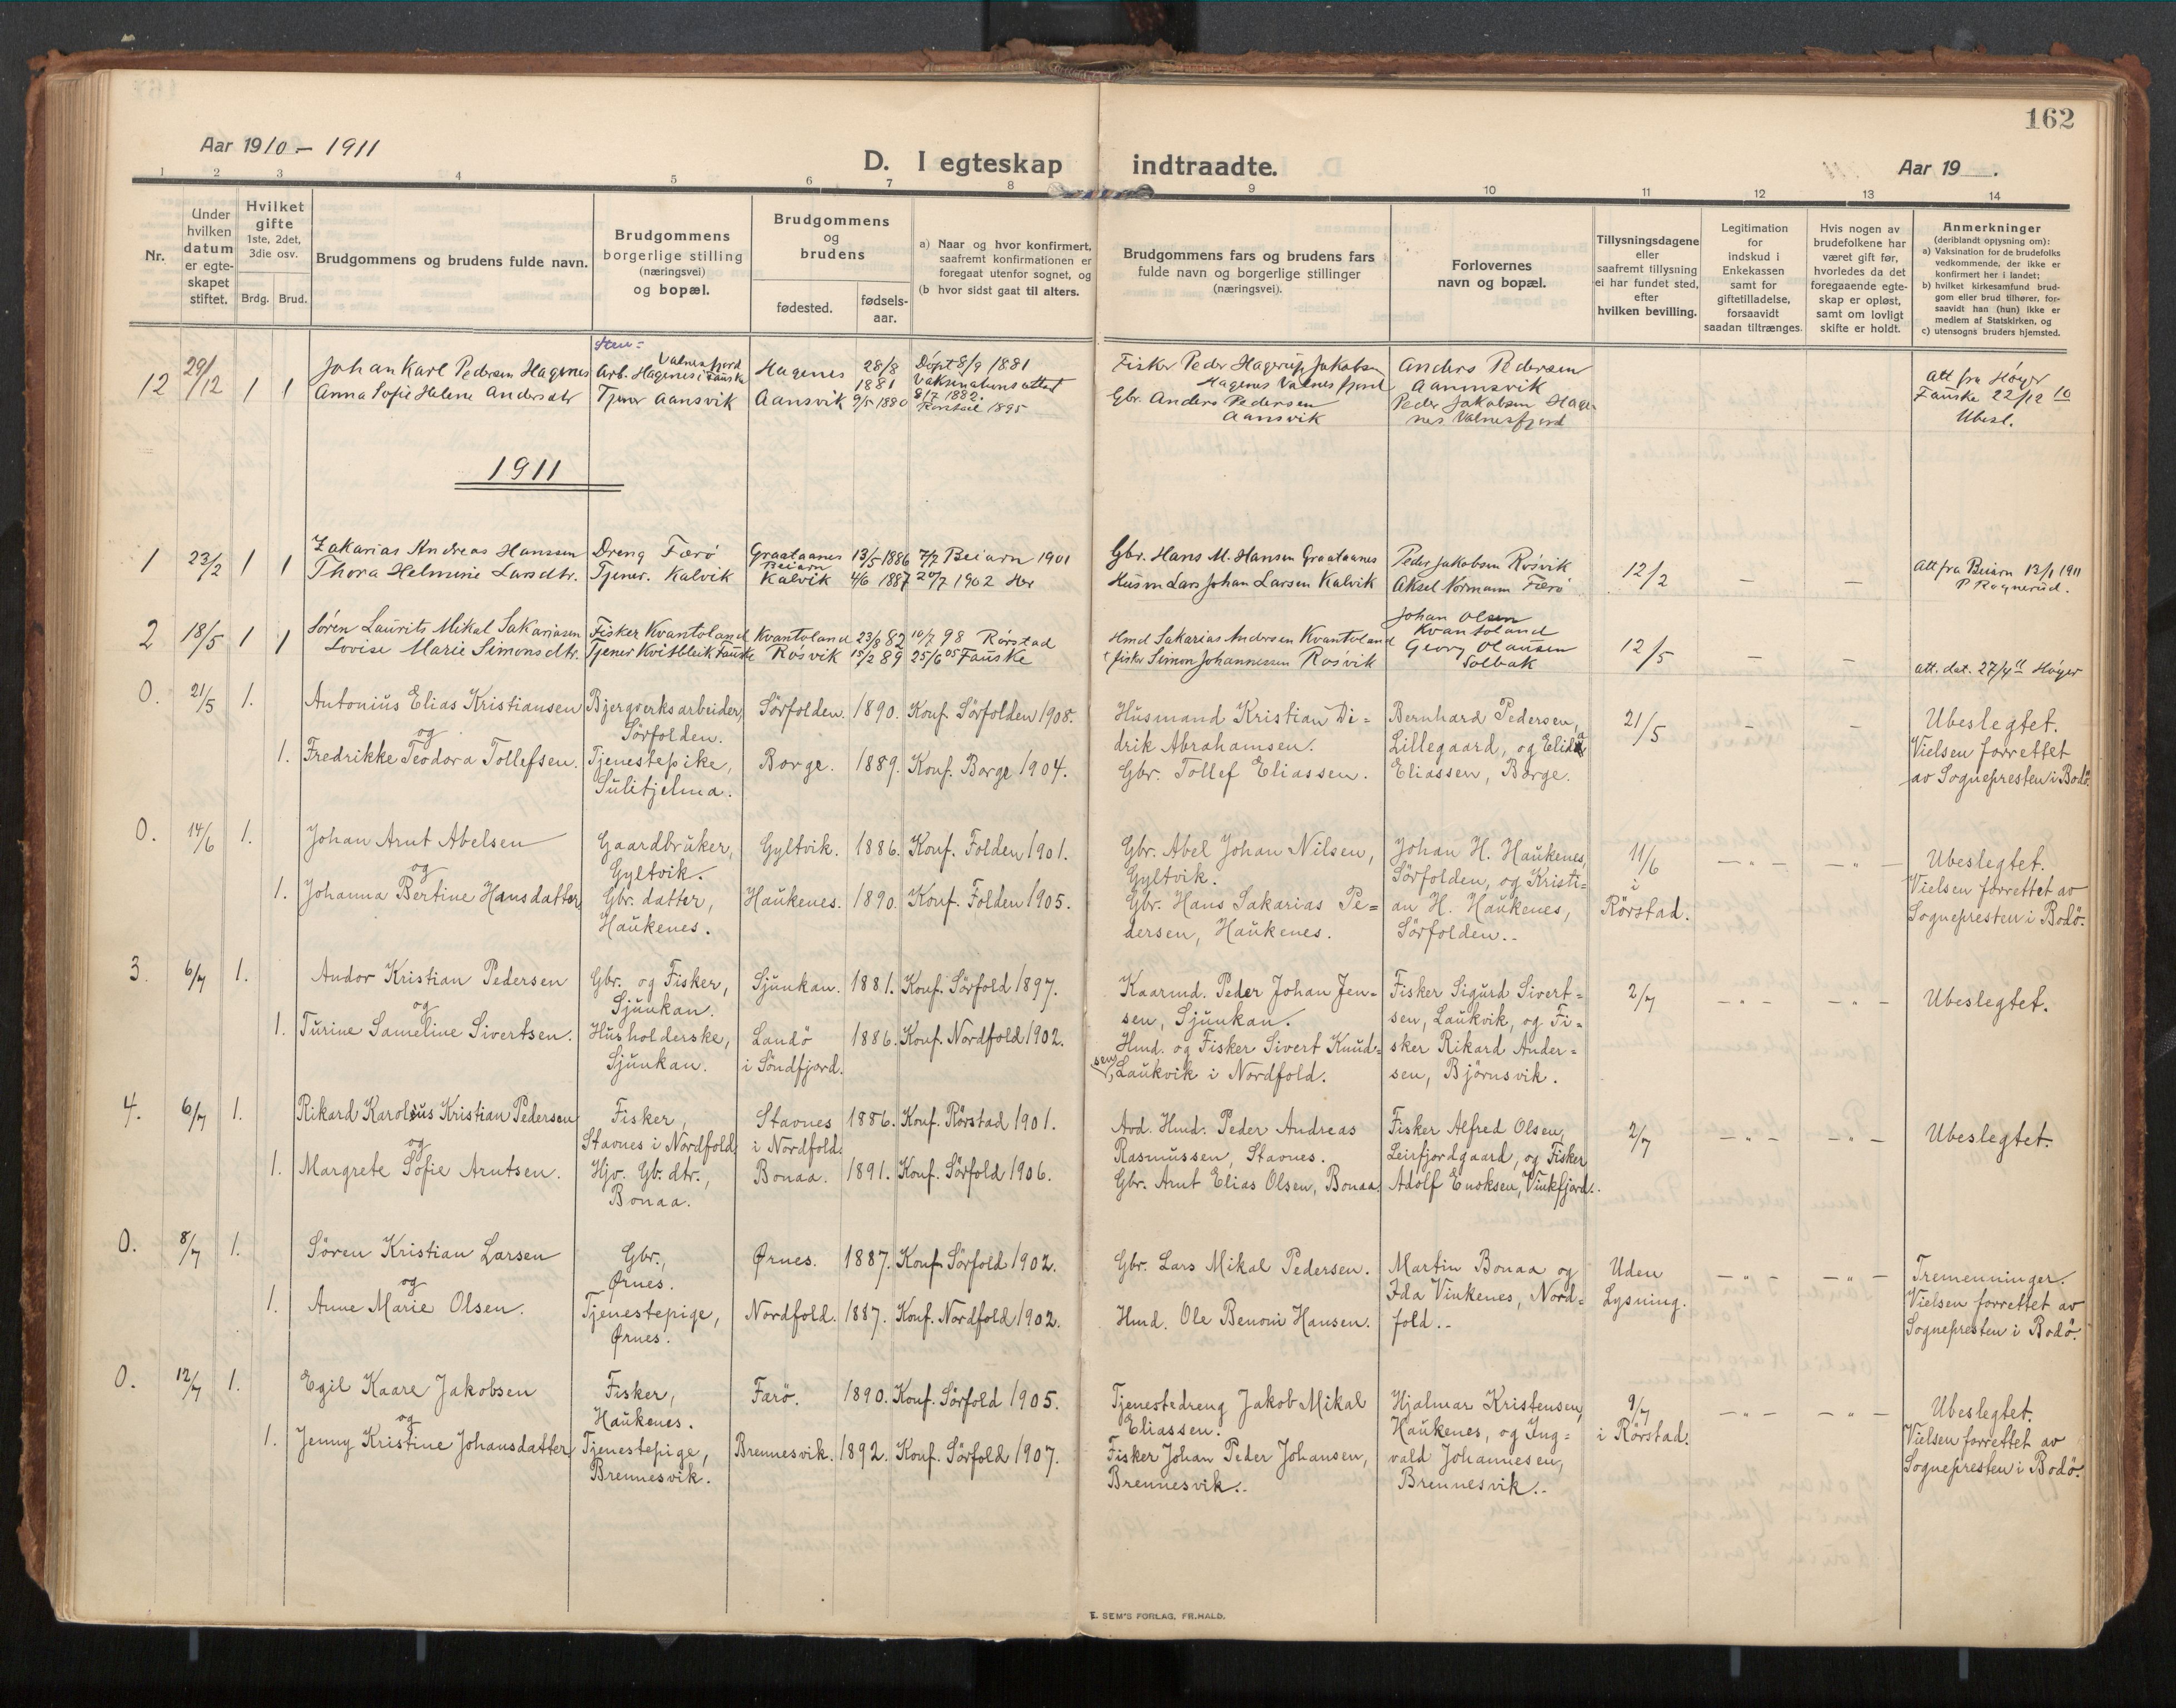 162
Aar 1910 - 1911
D. I egteskap indtraadte.
Aar 19 .
1 2 3 4 5 6 7 8 9 10 11 12 13 14
Nr.
Under hvilken datum er egte-skapet stiftet.
Hvilket gifte 1ste, 2det, 3die osv.
Brdg. Brud.
Brudgommens og brudens fulde navn.
Brudgommens borgerlige stilling (næringsvei) og bopæl.
Brudgommens og brudens
fødested.
fødsels-aar.
a) Naar og hvor konfirmert, saafremt konfirmationen er foregaat utenfor sognet, og
(b hvor sidst gaat til alters.
Brudgommens fars og brudens fars fulde navn og borgerlige stillinger (næringsvei).
Forlovernes navn og bopæl.
Tillysningsdagene eller saafremt tillysning ei har fundet sted, efter hvilken bevilling.
Legitimation for indskud i Enkekassen samt for giftetilladelse, forsaavidt saadan tiltrænges.
Hvis nogen av brudefolkene har været gift før, hvorledes da det foregaaende egte-skap er opløst, samt om lovligt skifte er holdt.
Anmerkninger
(deriblandt opjysning om):
a) Vaksination for de brudefolks vedkommende, der ikke er konfirmert her i landet;
b) hvilket kirkesamfund brud-gom eller brud tilhører, for-saavidt han (hun) ikke er medlem af Statskirken, og
c) utensogns bruders hjemsted.
12 29/12 1 1
Johan Karl Pedersen Hagenes
Anna Sofie Helene Andersdtr
Valnesfjord
Arb. Hagenes i Fauske
Tjener Aansvik
Hagenes 28/8 1881
Aansvik 9/5 1880
Døpt 8/9 1881
Vaksinationsattest
8/7 1882.
Rørstad 1895
Fisker Peder Hagerup Jakobsen
Hagenes Valnesfjord
Gbr. Anders Pedersen
Aansvik
Anders Pedersen
Aannsvik
Peder Jakobsen Hage-
nes Valnesfjord
Att fra Høyer
Fauske 22/12 10
Ubesl.
1911
1 23/2 1 1
Zakarias Andreas Hanssen
Thora Helmine Larsdtr.
Dreng Færö
Tjener. Kalvik
Graataanes
Beiarn
Kalvik
13/5 1886
4/6 1887
7/7 Beiarn 1901
20/7 1902 Her
Gbr. Hans M. Hansen Graataanes
Husm Lars Johan Larsen Kalvik
Peder Jakobsen Rösvik
Aksel Normann Færö
12/2 — —
Att fra Beiarn 13/1 1911
P Ragnerud.
2 18/5 1 1
Sören Laurits Mikal Sakariasen
Lovise Marie Simonsdtr.
Fisker Kvantoland
Tjener Kvitbleik Fauske
Kvantoland 23/8 82
Rösvik 15/2 89
10/7 98 Rörstad
25/6 05 Fauske
Hmd Sakarias Andersen Kvantoland
fisker Simon Johannessen Rosvik
Johan Olsen
Kvantoland
Georg Olausen
Solbak
12/5 — —
att. dat. 27/4 11 Höyer
0. 21/5 1.
Antonius Elias Kristiansen
og
1. Fredrikke Teodora Tollefsen.
Bjergverksarbeider,
Sörfolden.
Tjenestepike,
Sulitjelma.
Sörfolden. 1890. Konf. Sörfolden 1908.
Borge. 1889. Konf. Borge 1904.
Husmand Kristian Di=
drik Abrahamsen.
Gbr. Tollef Eliassen.
Bernhard Pedersen,
Lillegaard, og Elida
Eliassen, Borge.
21/5 - -
Ubeslegtet.
Vielsen forrettet
av Sognepresten i Bodö.
0. 14/6 1.
Johan Arnt Abelsen
og
1. Johanna Bertine Hansdatter
Gaardbruker,
Gyltvik.
Gbr. datter,
Haukenes.
Gyltvik. 1886. Konf. Folden 1901.
Haukenes. 1890. Konf. Folden 1905.
Gbr. Abel Johan Nilsen,
Gyltvik.
Gbr. Hans Sakarias Pe=
dersen, Haukenes.
Johan H. Haukenes,
Sörfolden, og Kristi=
an H. Haukenes,
Sörfolden..
11/6
i
Rörstad.
— " — — " —
Ubeslegtet.
Vielsen forrettet av
Sognepresten i Bodö.
3. 6/7 1.
Andor Kristian Pedersen
og
1. Turine Sameline Sivertsen.
Gbr. og Fisker,
Sjunkan.
Husholderske,
Sjunkan.
Sjunkan. 1881. Konf. Sörfold 1897.
Landö
i Söndfjord.
1886. Konf. Nordfold 1902.
Kaarmd. Peder Johan Jen=
sen, Sjunkan.
Hmd. og Fisker Sivert Knud=
sen, Laukvik i Nordfold.
Fisker Sigurd Sivert=
sen, Laukvik, og Fi=
sker Rikard Ander=
sen, Björnsvik.
2/7 — " — — " —
Ubeslegtet.
4. 6/7 1.
Rikard Karolius Kristian Pedersen
og
1. Margrete Sofie Arntsen.
Fisker,
Stavnes i Nordfold.
Hjv. Gb. dtr.,
Bonaa.
Stavnes
i Nordfold.
Bonaa.
1886. Konf. Rörstad 1901.
1891. Konf. Sörfold 1906.
Avd. Hmd. Peder Andreas
Rasmussen, Stavnes.
Gbr. Arnt Elias Olsen, Bonaa.
Fisker Alfred Olsen,
Leirfjordgaard, og Fisker
Adolf Enoksen, Vinkfjord.
2/7 — " — — " —
Ubeslegtet.
0. 8/7 1.
Sören Kristian Larsen
og
1. Anne Marie Olsen.
Gbr.,
Ørnes.
Tjenestepige,
Ørnes.
Ørnes. 1887. Konf Sörfold 1902.
Nordfold. 1887. Konf. Nordfold 1902.
Gbr. Lars Mikal Pedersen.
Hmd. Ole Benoni Hansen.
Martin Bonaa og
Ida Vinkenes, Nord=
fold..
Uden
Lysning.
— " — — " —
Tremenninger.
Vielsen forrettet av
Sognepresten i Bodö.
0. 12/7 1.
Egil Kaare Jakobsen
og
1. Jenny Kristine Johansdatter.
Fisker,
Haukenes.
Tjenestepige,
Brennesvik.
Farö. 1890. Konf. Sörfold 1905.
Brennesvik. 1892. Konf. Sörfold 1907.
Tjenestedreng Jakob Mikal
Eliassen.
Fisker Johan Peder Johansen,
Brennesvik..
Hjalmar Kristensen,
Haukenes, og Ing=
vald Johannesen,
Brennesvik..
9/7
i Rörstad.
— " — — " —
Ubeslegtet.
Vielsen forrettet av
Sognepresten i Bodö.
E. SEM'S FORLAG, FR.HALD.